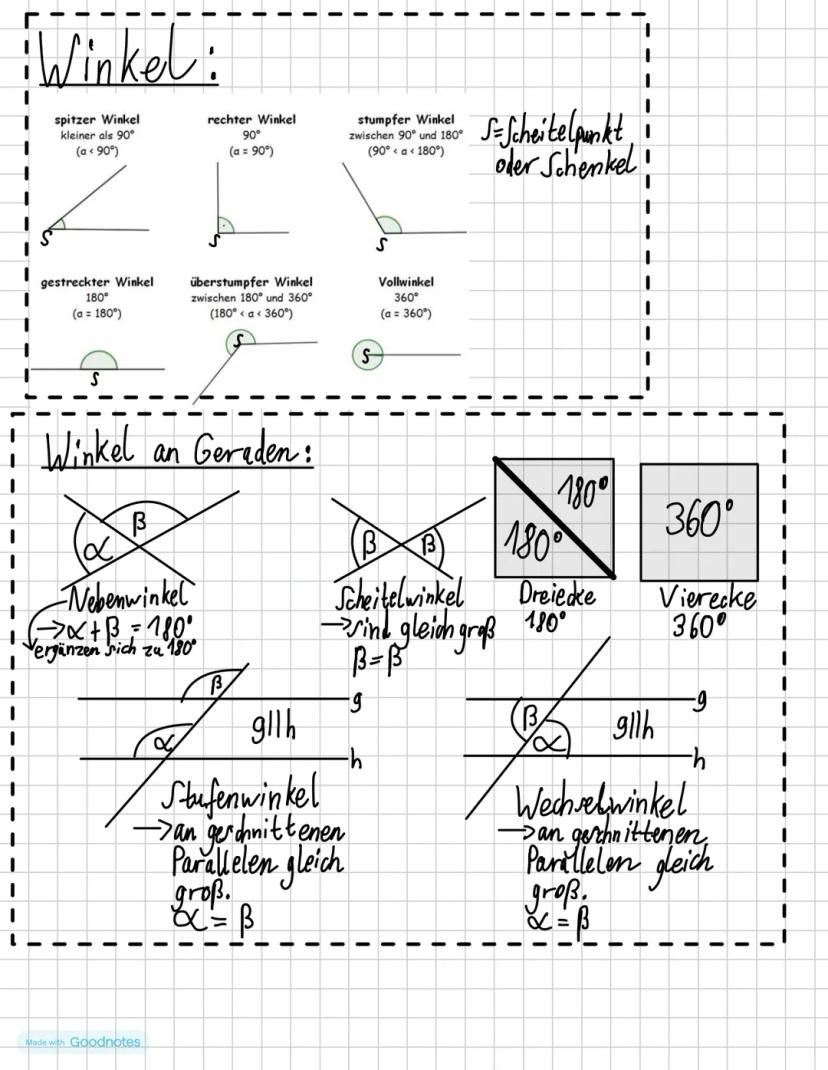 Winkel:
spitzer Winkel
kleiner als 90°
(α < 90°)
S
rechter Winkel
90°
(α = 90°)
S
stumpfer Winkel
zwischen 90° und 180°
(90° < α < 180°)
S
S=Scheitelpunkt
oder Schenkel
gestreckter Winkel
180°
(α = 180°)
S
überstumpfer Winkel
zwischen 180° und 360°
(180° < α < 360°)
S
Vollwinkel
360°
(α = 360°)
S
Winkel an Geraden:
β
α
Nebenwinkel
→α+β = 180°
ergänzen sich zu 180°
β β
Scheitelwinkel
→sind gleich groß
β=β
180°
180°
Dreiecke
180°
360°
Vierecke
360°
β
g
α
g||h
h
Stufenwinkel
→an geschnittenen
Parallelen gleich
groß.
α = β
g
β
α
g||h
h
Wechselwinkel
→an geschnittenen
Parallelen gleich
groß.
α = β
Made with Goodnotes